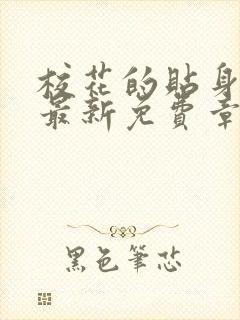 校花的贴身
最新免費章
黑色筆芯